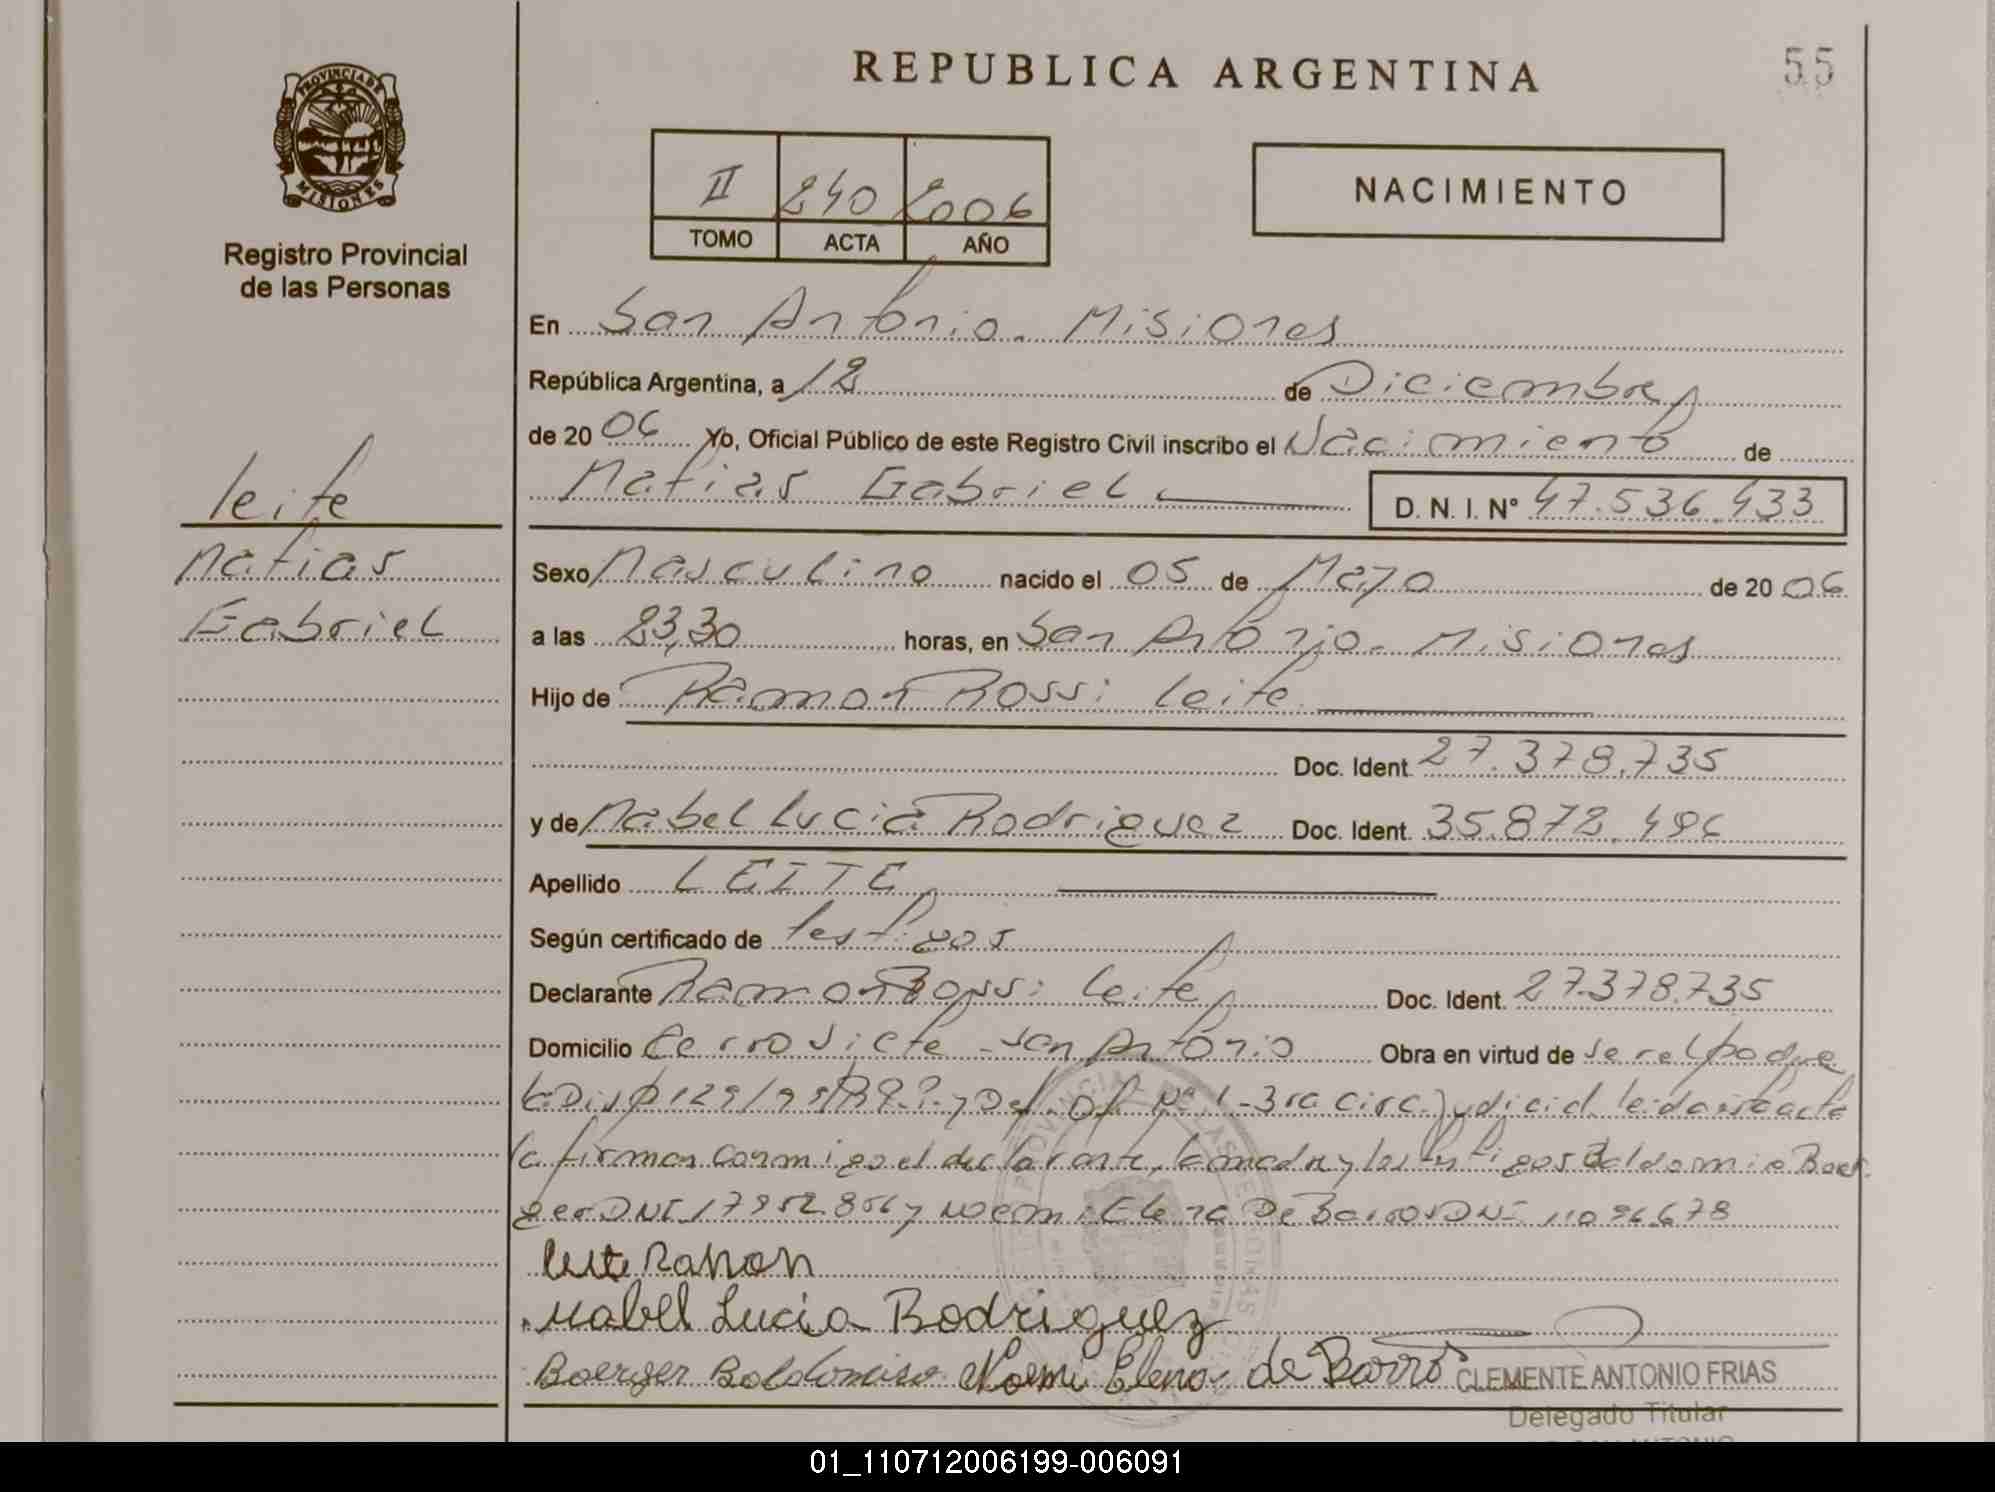 REPUBLICA ARGENTINA
55
PROVINCIA DE MISIONES
Registro Provincial
de las Personas
II 240 2006
TOMO ACTA AÑO
NACIMIENTO
En San Antonio. Misiones
República Argentina, a 12 de Diciembre
de 2006 Yo, Oficial Público de este Registro Civil inscribo el Nacimiento de
Matias Gabriel D. N. I. Nº 47.536.433
leite
Matias
Gabriel
Sexo Masculino nacido el 05 de Mayo de 2006
a las 23,30 horas, en San Antonio. Misiones
Hijo de Ramon Rossi leite
Doc. Ident. 27.378.735
y de Mabel Lucia Rodriguez Doc. Ident. 35.872.496
Apellido LEITE
Según certificado de testigos
Declarante Ramon Rossi leite Doc. Ident. 27.378.735
Domicilio Cerro Siete - San Antonio Obra en virtud de
Disp 129/99 Def. Of. Nº 1 - 3ra Circ. Judicial leida esta acta
la firman conmigo el declarante, la madre y los testigos Baldomiro Boer
ger DNI 17952.856 y Noemi Elena De Barros DNI 11096.678
leite Ramon
Mabel Lucia Rodriguez
Boerger Baldomiro Noemi Elena de Barro
CLEMENTE ANTONIO FRIAS
Delegado Titular
01_110712006199-006091